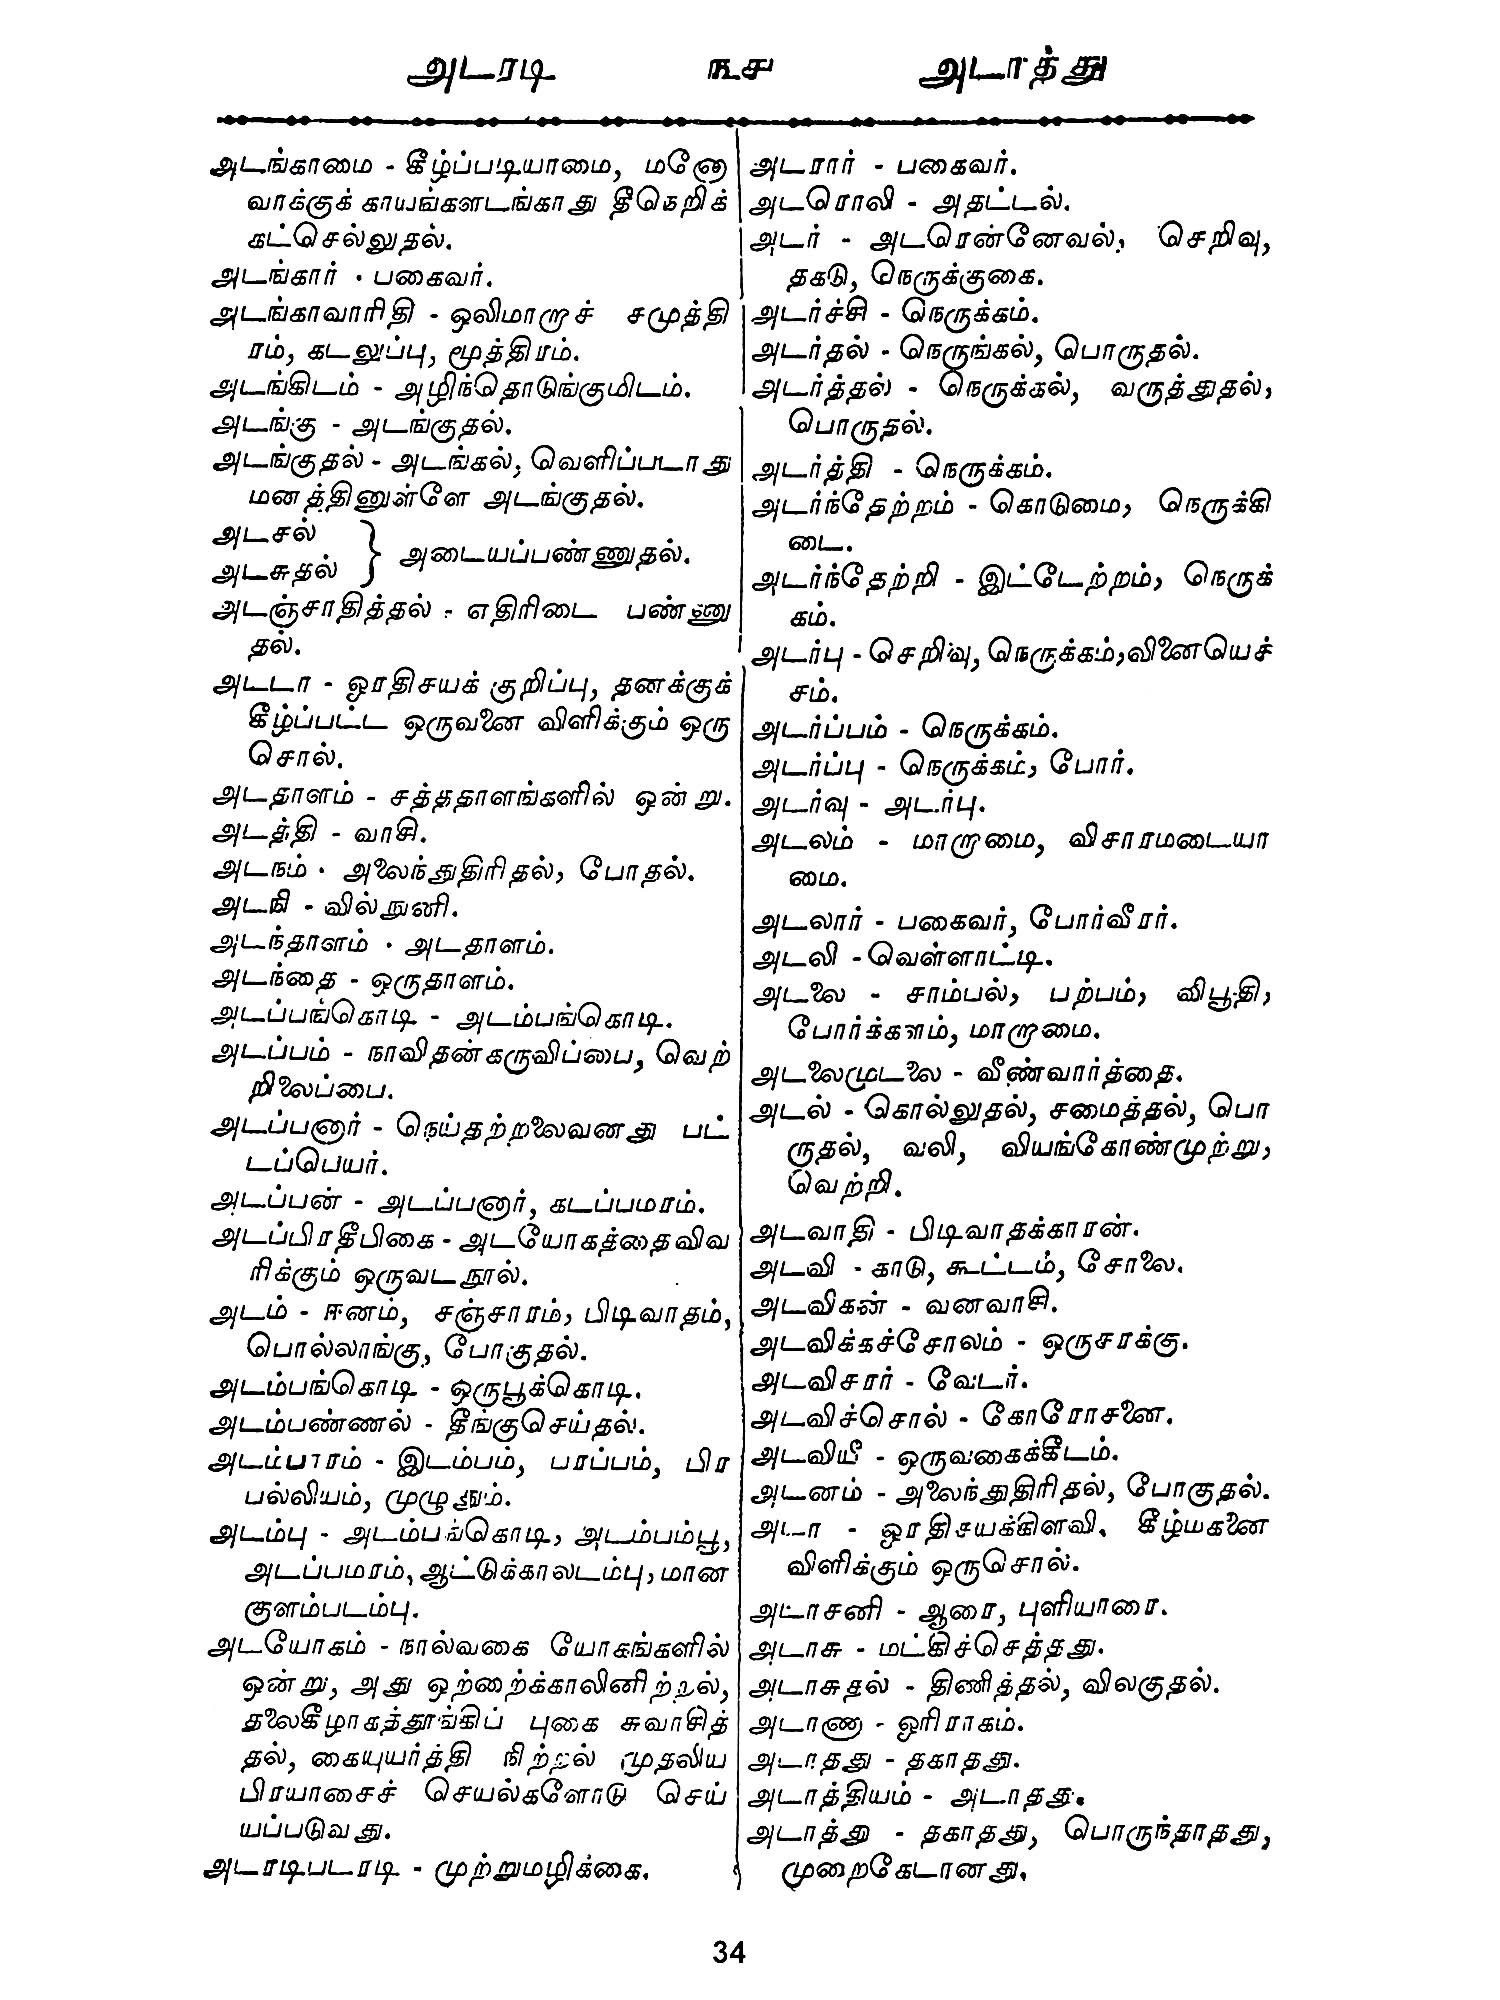 அடரடி ௩௪ அடாத்து
அடங்காமை - கீழ்ப்படியாமை, மனோ
வாக்குக் காயங்களடங்காது தீநெறிக்
கட்செல்லுதல்.
அடங்கார் - பகைவர்.
அடங்காவாரிதி - ஒலிமாறாச் சமுத்தி
ரம், கடலுப்பு, மூத்திரம்.
அடங்கிடம் - அழிந்தொடுங்குமிடம்.
அடங்கு - அடங்குதல்.
அடங்குதல் - அடங்கல், வெளிப்படாது
மனத்தினுள்ளே அடங்குதல்.
அடசல்
அடசுதல் } அடையப்பண்ணுதல்.
அடஞ்சாதித்தல் - எதிரிடை பண்ணு
தல்.
அடடா - ஓரதிசயக் குறிப்பு, தனக்குக்
கீழ்ப்பட்ட ஒருவனை விளிக்கும் ஒரு
சொல்.
அடதாளம் - சத்ததாளங்களில் ஒன்று.
அடத்தி - வாசி.
அடநம் - அலைந்துதிரிதல், போதல்.
அடநி - வில்நுனி.
அடந்தாளம் - அடதாளம்.
அடந்தை - ஒருதாளம்.
அடப்பங்கொடி - அடம்பங்கொடி.
அடப்பம் - நாவிதன்கருவிப்பை, வெற்
றிலைப்பை.
அடப்பனார் - நெய்தற்றலைவனது பட்
டப்பெயர்.
அடப்பன் - அடப்பனார், கடப்பமரம்.
அடப்பிரதீபிகை - அடயோகத்தைவிவ
ரிக்கும் ஒருவடநூல்.
அடம் - ஈனம், சஞ்சாரம், பிடிவாதம்,
பொல்லாங்கு, போகுதல்.
அடம்பங்கொடி - ஒருபூக்கொடி.
அடம்பண்ணல் - தீங்குசெய்தல்.
அடம்பாரம் - இடம்பம், பரப்பம், பிர
பல்லியம், முழுதும்.
அடம்பு - அடம்பங்கொடி, அடம்பம்பூ,
அடப்பமரம், ஆட்டுக்காலடம்பு, மான
குளம்படம்பு.
அடயோகம் - நால்வகை யோகங்களில்
ஒன்று, அது ஒற்றைக்காலினிற்றல்,
தலைகீழாகத்தூங்கிப் புகை சுவாசித்
தல், கையுயர்த்தி நிற்றல் முதலிய
பிரயாசைச் செயல்களோடு செய்
யப்படுவது.
அடரடிபடரடி - முற்றுமழிக்கை.
அடரார் - பகைவர்.
அடரொலி - அதட்டல்.
அடர் - அடரென்னேவல், செறிவு,
தகடு, நெருக்குகை.
அடர்ச்சி - நெருக்கம்.
அடர்தல் - நெருங்கல், பொருதல்.
அடர்த்தல் - நெருக்கல், வருத்துதல்,
பொருதல்.
அடர்த்தி - நெருக்கம்.
அடர்ந்தேற்றம் - கொடுமை, நெருக்கி
டை.
அடர்ந்தேற்றி - இட்டேற்றம், நெருக்
கம்.
அடர்பு - செறிவு, நெருக்கம், வினையெச்
சம்.
அடர்ப்பம் - நெருக்கம்.
அடர்ப்பு - நெருக்கம், போர்.
அடர்வு - அடர்பு.
அடலம் - மாறாமை, விசாரமடையா
மை.
அடலார் - பகைவர், போர்வீரர்.
அடலி - வெள்ளாட்டி.
அடலை - சாம்பல், பற்பம், விபூதி,
போர்க்களம், மாறாமை.
அடலைமுடலை - வீண்வார்த்தை.
அடல் - கொல்லுதல், சமைத்தல், பொ
ருதல், வலி, வியங்கோண்முற்று,
வெற்றி.
அடவாதி - பிடிவாதக்காரன்.
அடவி - காடு, கூட்டம், சோலை.
அடவிகன் - வனவாசி.
அடவிக்கச்சோலம் - ஒருசரக்கு.
அடவிசரர் - வேடர்.
அடவிச்சொல் - கோரோசனை.
அடவியீ - ஒருவகைக்கீடம்.
அடனம் - அலைந்துதிரிதல், போகுதல்.
அடா - ஓரதிசயக்கிளவி, கீழ்மகனை
விளிக்கும் ஒருசொல்.
அடாசனி - ஆரை, புளியாரை.
அடாசு - மட்கிச்செத்தது.
அடாசுதல் - திணித்தல், விலகுதல்.
அடாணா - ஓரிராகம்.
அடாதது - தகாதது.
அடாத்தியம் - அடாதது.
அடாத்து - தகாதது, பொருந்தாதது,
முறைகேடானது.
34